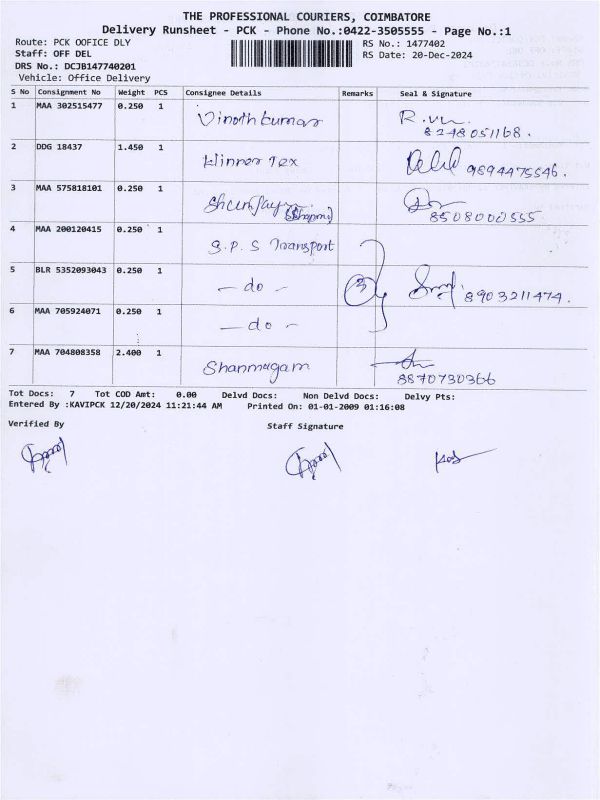 THE PROFESSIONAL COURIERS, COIMBATORE
Delivery Runsheet - PCK - Phone No.:0422-3505555 - Page No.:1
Route: PCK OOFICE DLY RS No.: 1477402
Staff: OFF DEL RS Date: 20-Dec-2024
DRS No.: DCJB147740201
Vehicle: Office Delivery
S No Consignment No Weight PCS Consignee Details Remarks Seal & Signature
1 MAA 302515477 0.250 1 Vinoth kumar
8248051168.
2 DDG 18437 1.450 1 Winner Tex 9894475546.
3 MAA 575818101 0.250 1
8508000555
4 MAA 200120415 0.250 1 S.P.S Transport
5 BLR 5352093043 0.250 1 - do - 3 8903211474.
6 MAA 705924071 0.250 1 - do -
7 MAA 704808358 2.400 1 Shanmugam
8870730366
Tot Docs: 7 Tot COD Amt: 0.00 Delvd Docs: Non Delvd Docs: Delvy Pts:
Entered By :KAVIPCK 12/20/2024 11:21:44 AM Printed On: 01-01-2009 01:16:08
Verified By Staff Signature